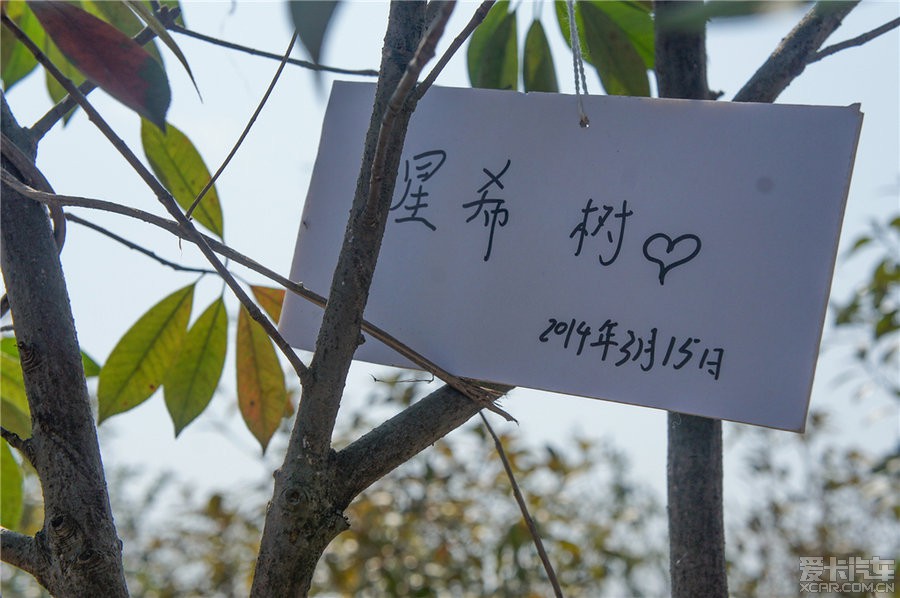 星希树♡
2014年3月15日
爱卡汽车
XCAR.COM.CN